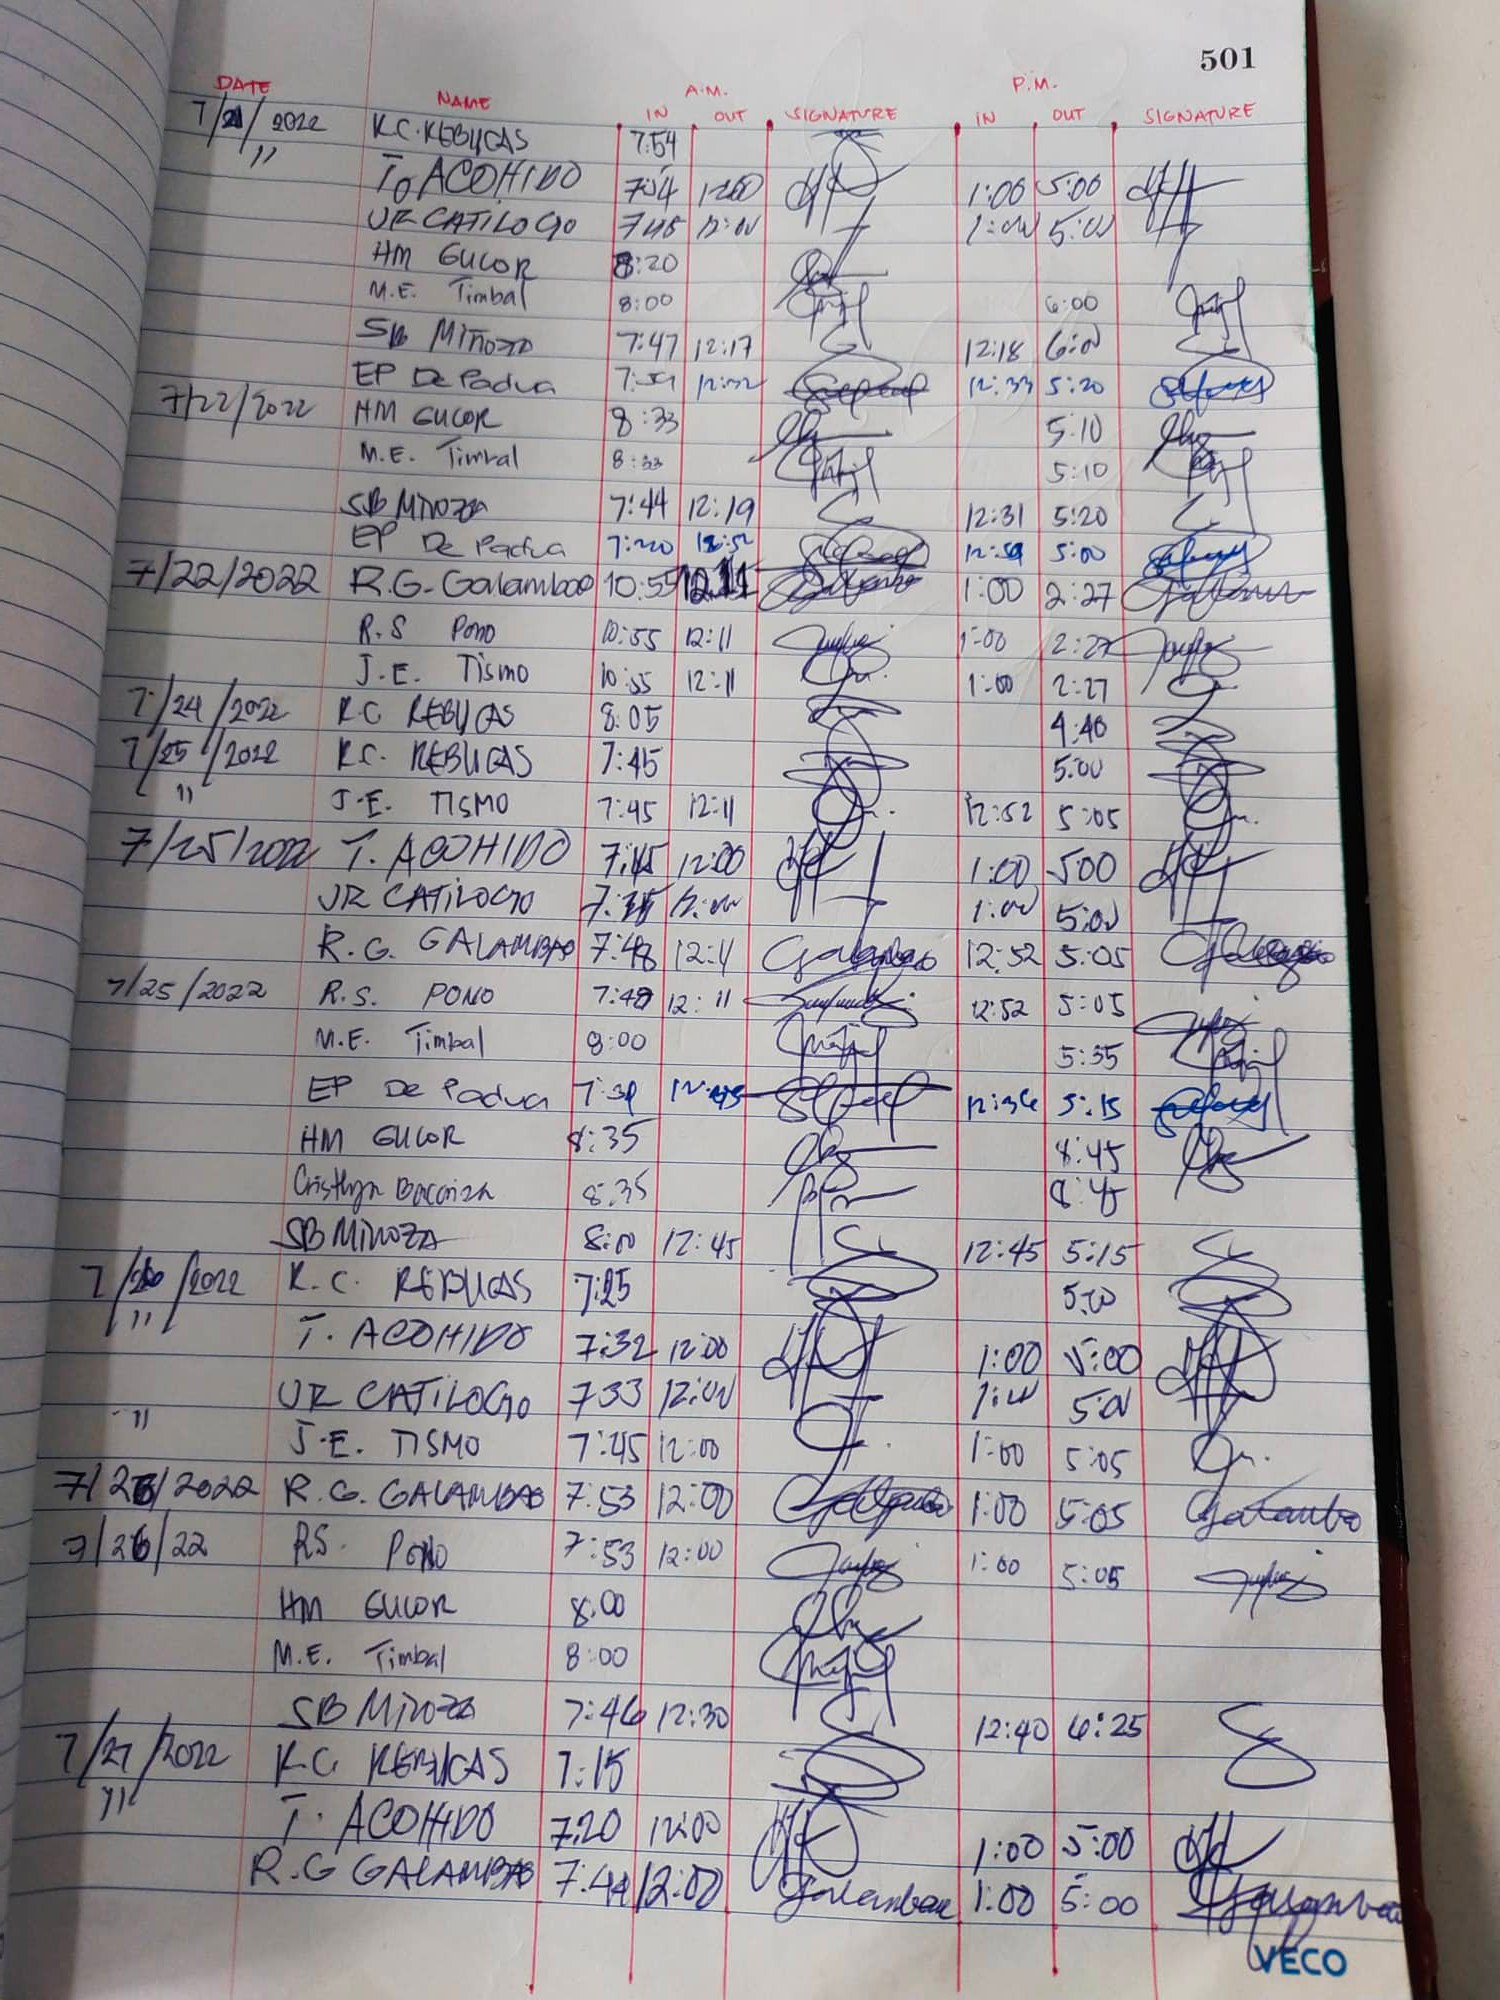 501
DATE NAME A.M. P.M.
IN OUT SIGNATURE IN OUT SIGNATURE
7/21/2022 K.C. REBUCAS 7:54
" T. ACOHIDO 7:54 12:00 1:00 5:00
UR CATILOGO 7:45 12:00 1:00 5:00
HM GUCOR 8:20
M.E. Timbal 8:00 6:00
SB MIÑOZA 7:47 12:17 12:18 6:00
EP De Padua 7:59 12:32 12:33 5:20
7/22/2022 HM GUCOR 8:33 5:10
M.E. Timbal 8:33 5:10
SB MIÑOZA 7:44 12:19 12:31 5:20
EP De Padua 7:20 5:00
7/22/2022 R.G. Galambao 10:55 12:11 1:00 2:27
R.S Pono 10:55 12:11 1:00 2:27
J.E. Tismo 10:55 12:11 1:00 2:27
7/24/2022 K.C REBUCAS 8:05 4:40
7/25/2022 K.C. REBUCAS 7:45 5:00
" J.E. TISMO 7:45 12:11 12:52 5:05
7/25/2022 T. ACOHIDO 7:45 12:00 1:00 5:00
UR CATILOGO 12:00 1:00 5:00
R.G. GALAMBAO 7:48 12:11 Galambao 12:52 5:05
7/25/2022 R.S. PONO 7:48 12:11 12:52 5:05
M.E. Timbal 8:00 5:35
EP De Padua 12:36 5:15
HM GUCOR 8:35 8:45
8:35 8:45
SB MIÑOZA 8:00 12:45 12:45 5:15
7/26/2022 K.C. REBUCAS 7:25 5:00
" T. ACOHIDO 7:32 12:00 1:00 5:00
UR CATILOGO 7:33 12:00 1:00 5:00
" J.E. TISMO 7:45 12:00 1:00 5:05
7/26/2022 R.G. GALAMBAO 7:53 12:00 1:00 5:05 Galambao
7/26/22 RS. PONO 7:53 12:00 1:00 5:05
HM GUCOR 8:00
M.E. Timbal 8:00
SB MIÑOZA 7:46 12:30 12:40 6:25
7/27/2022 K.C REBUCAS 7:15
" T. ACOHIDO 7:20 12:00 1:00 5:00
R.G GALAMBAO 7:44 12:00 Galambao 1:00 5:00 Galambao
VECO